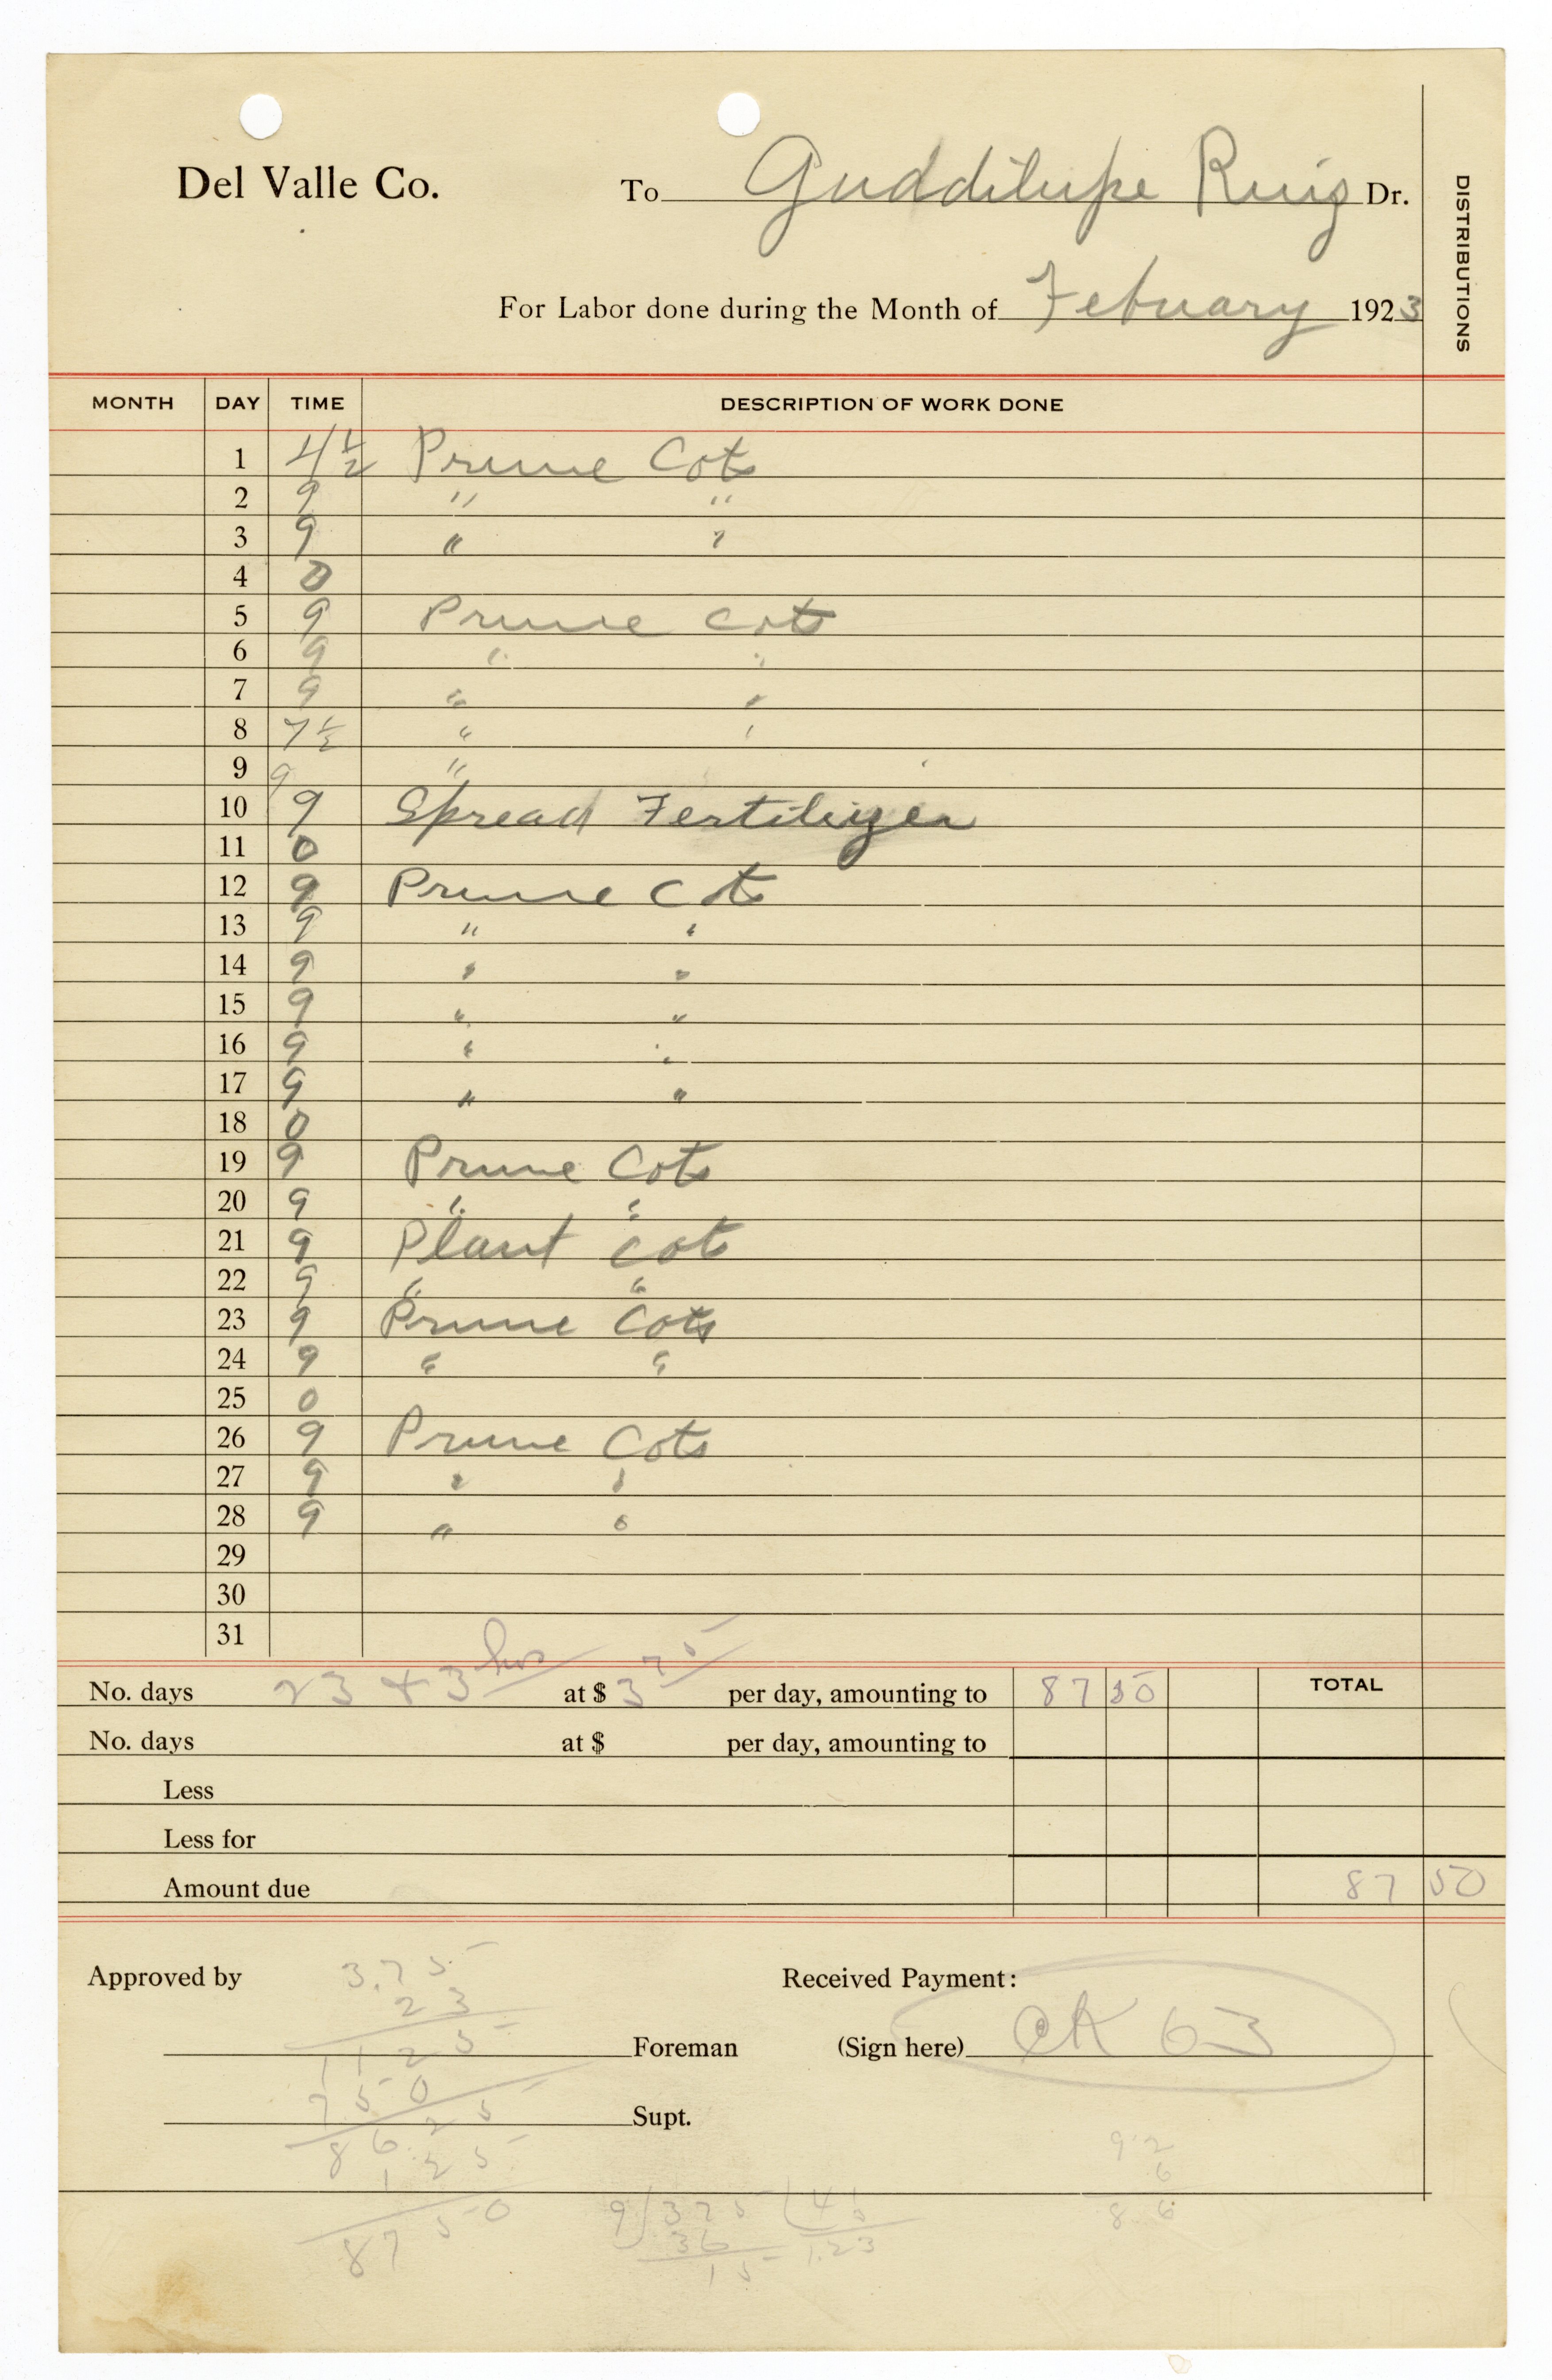 Del Valle Co. To Guddilupe Ruiz Dr.
DISTRIBUTIONS
For Labor done during the Month of Febuary 1923
MONTH DAY TIME DESCRIPTION OF WORK DONE
1 4 1/2 Prune Cots
2 9 " "
3 9 " "
4 0
5 9 Prune Cots
6 9 " "
7 9 " "
8 7 1/2 " "
9 9 "
10 9 Spread Fertilizer
11 0
12 9 Prune Cots
13 9 " "
14 9 " "
15 9 " "
16 9 " "
17 9 " "
18 0
19 9 Prune Cots
20 9 " "
21 9 Plant Cots
22 9 " "
23 9 Prune Cots
24 9 " "
25 0
26 9 Prune Cots
27 9 " "
28 9 " "
29
30
31
No. days 23 & 3 hrs at $ 3 75 per day, amounting to 87 50 TOTAL
No. days at $ per day, amounting to
Less
Less for
Amount due 87 50
Approved by 3.75 Received Payment:
23
1125 Foreman (Sign here) CK 63
750
Supt.
86.25
1 25
87 50
9 375 41
36
15 1.23
92
6
86